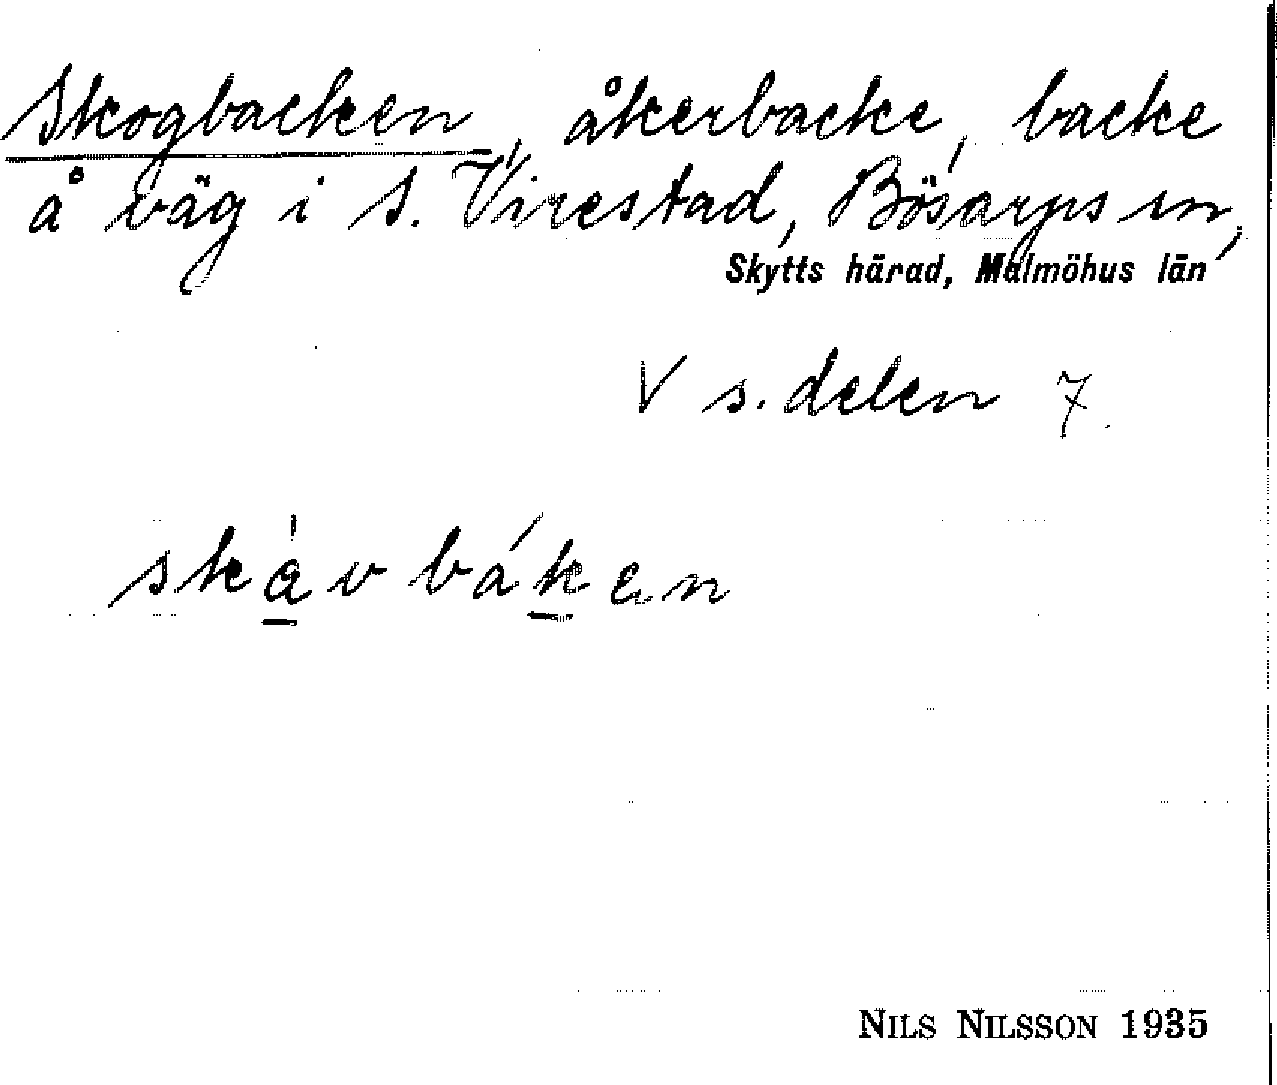 Skogbacken, åkerbacke, backe
å väg i S. Virestad, Bösarps sn,
Skytts härad, Malmöhus län
V s. delen 7.
skavbáken
NILS NILSSON 1935